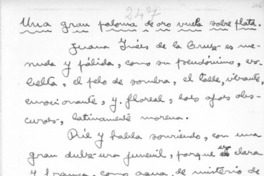 247
Una gran paloma de oro vuela sobre plata.
Juana Inés de la Cruz es me-
nuda y pálida, como su pseudónimo, es-
belta, el pelo de sombra, el talle, vibrante,
emocionante, y floreal, los ojos obs-
curos, latinamente morena.
Ríe y habla sonriendo, con una
gran dulzura juvenil, porque es clara
y franca, como agua de misterio de